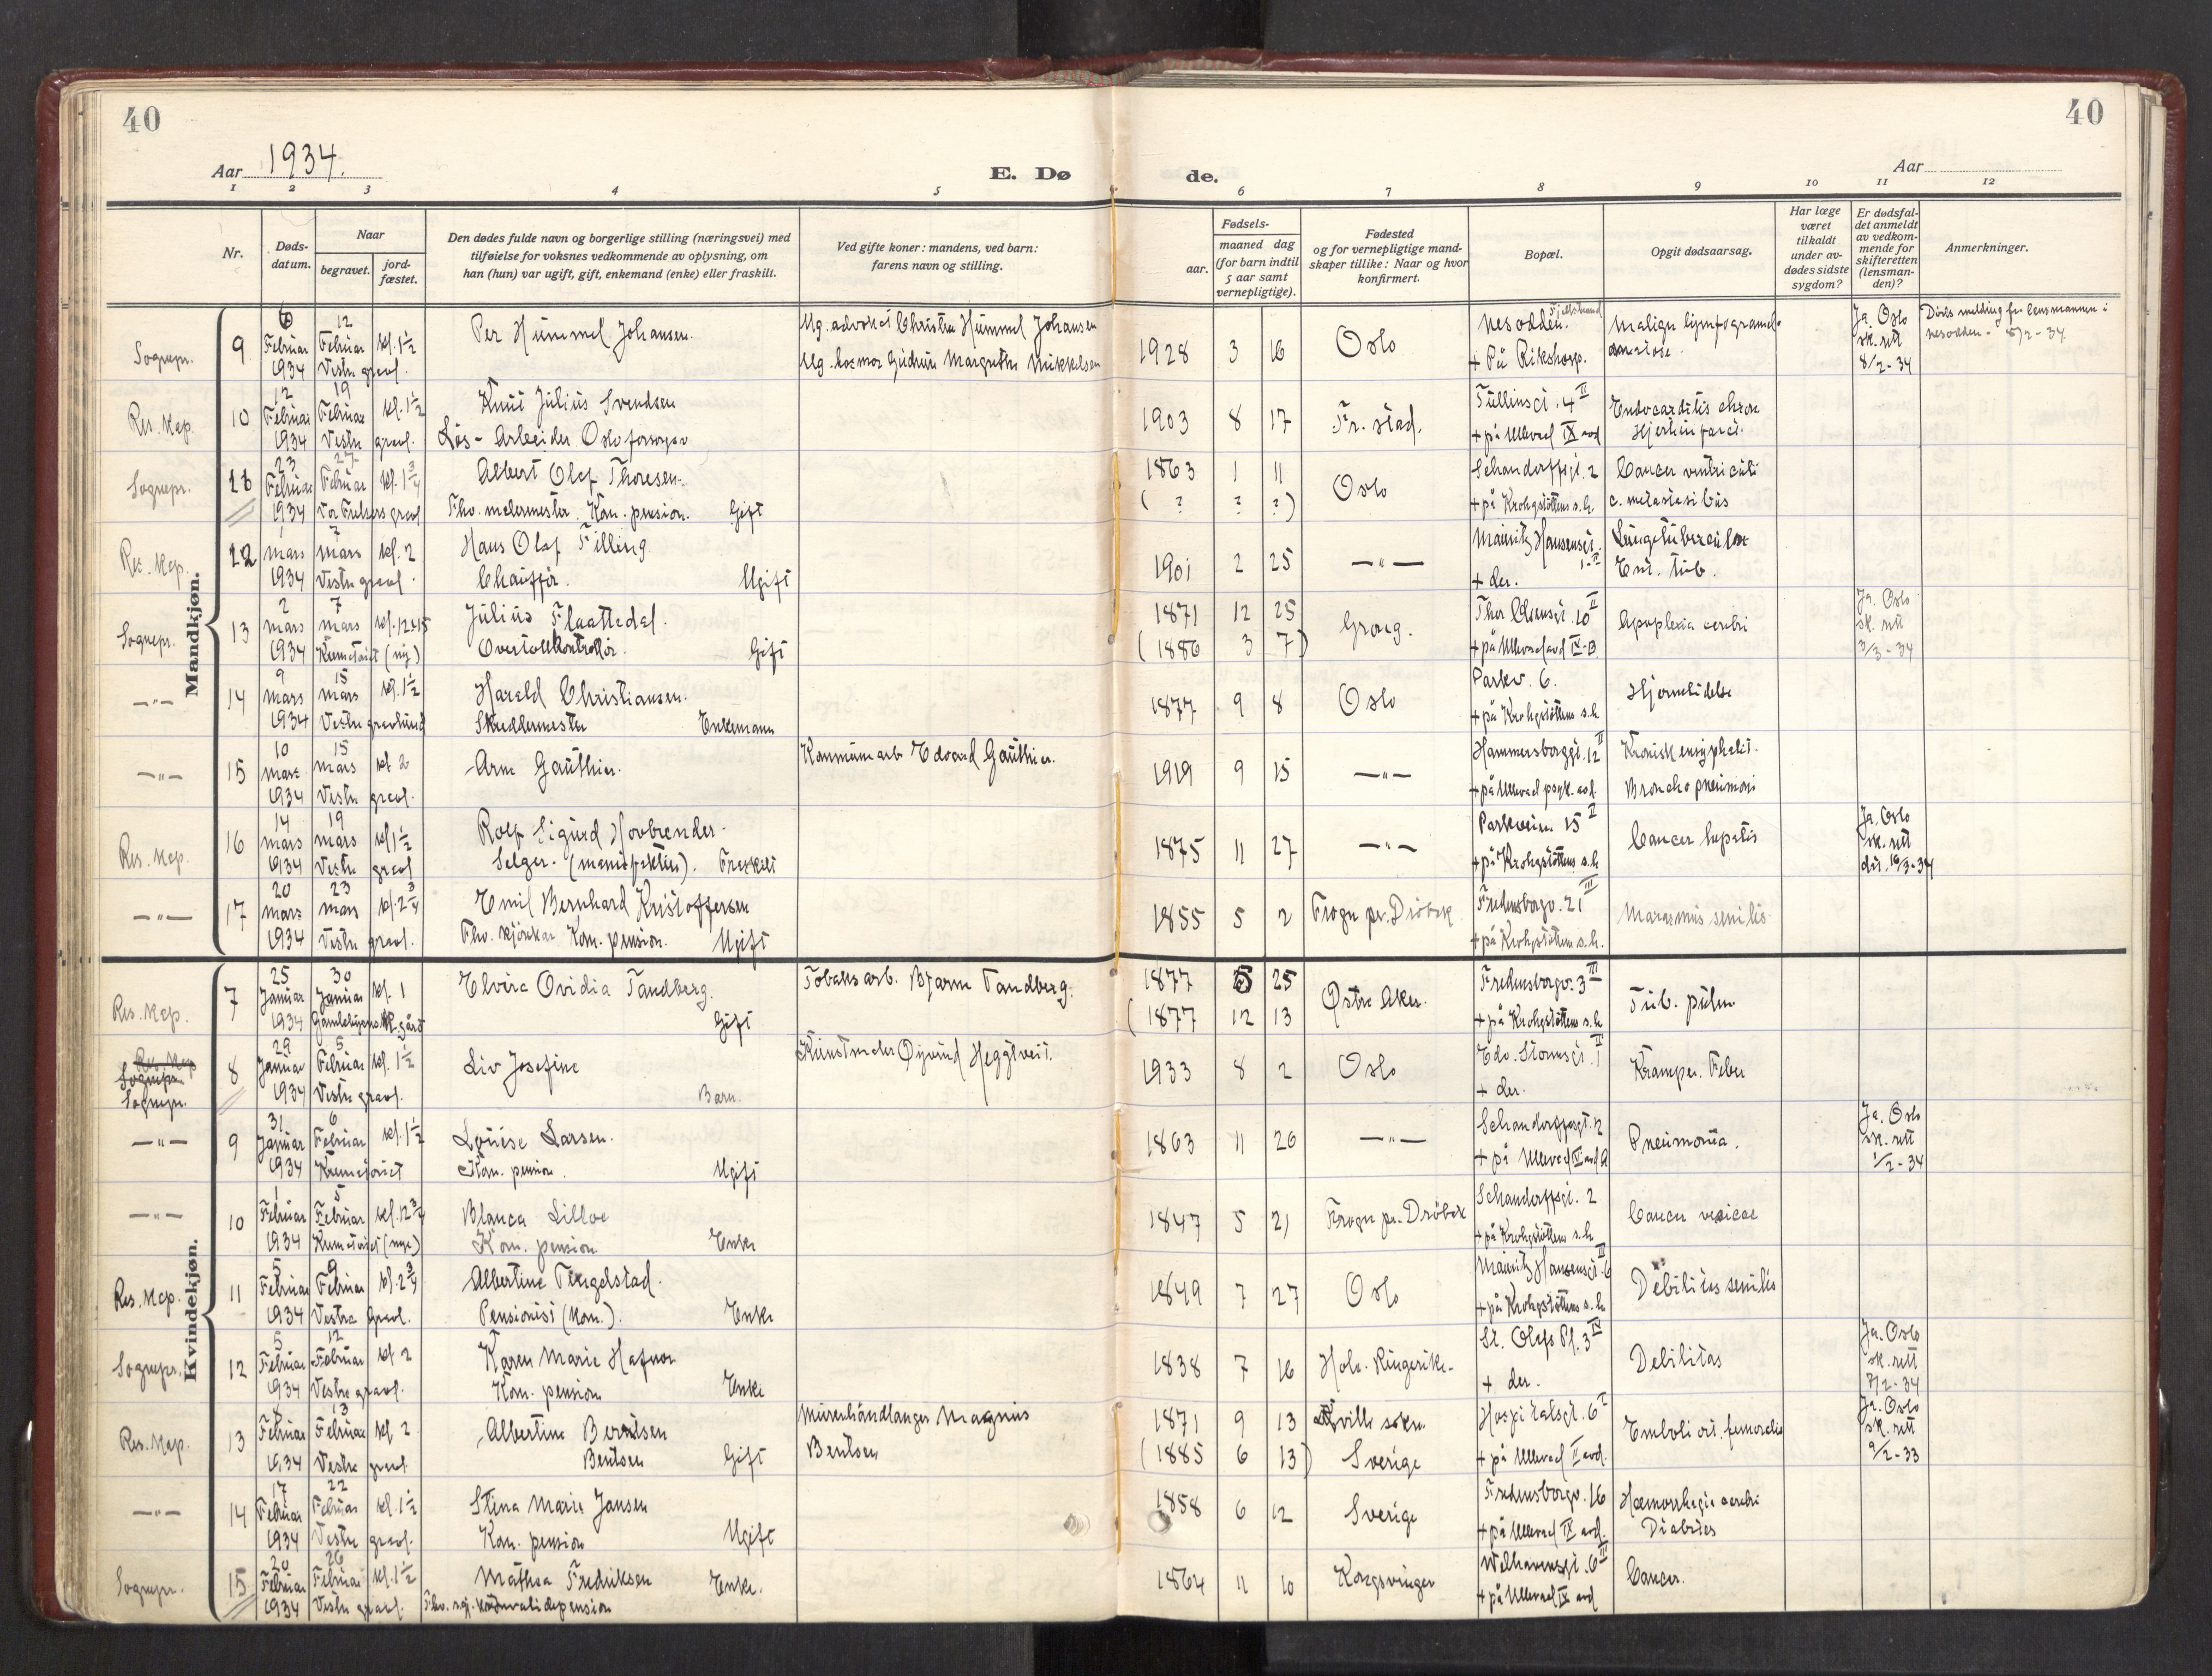 40
40
Aar 1934.
E. Dø
de.
Aar
1 2 3 4 5 6 7 8 9 10 11 12
Nr.
Døds-
datum.
Naar
begravet.
jord-
fæstet.
Den dødes fulde navn og borgerlige stilling (næringsvei) med
tilføielse for voksnes vedkommende av oplysning, om
han (hun) var ugift, gift, enkemand (enke) eller fraskilt.
Ved gifte koner: mandens, ved barn:
farens navn og stilling.
Fødsels-
aar.
maaned dag
(for barn indtil
5 aar samt
vernepligtige).
Fødested
og for vernepligtige mand-
skaper tillike: Naar og hvor
konfirmert.
Bopæl.
Opgit dødsaarsag.
Har læge
været
tilkaldt
under av-
dødes sidste
sygdom?
Er dødsfal-
det anmeldt
av vedkom-
mende for
skifteretten
(lensman-
den)?
Anmerkninger.
Mandkjøn.
Sognepr. 9
6 Februar 1934
12 Februar kl. 1½
Vestre gravl.
Per Hummel Johansen.
Ug. advokat Christen Hummel Johansen
Ug. Gudrun Margrethe Mikkelsen
1928 3 16
Oslo
Nesodden. Fjellstrand
+ På Rikshosp.
Malign lymfogranulomatose.
Ja. Oslo
sk. rett
8/2-34
Døds melding fra lensmannen i
Nesodden - 8/2-34.
Res. Kap. 10
12 Februar 1934
19 Februar kl. 1½
Vestre gravl.
Knut Julius Svendsen
Løs-Arbeider Oslo forsorgsv
1903 8 17
Fr.stad.
Tullinsgt. 4 II
+ på Ullevaal IX avd
Endocarditis chron
Hjerteinfarct.
Sognepr. 11
23 Februar 1934
27 Februar kl. 1¾
Vor Frelsers gravl
Albert Olaf Thoresen.
Fhv. malermester. Kom. pension. Gift
1863 1 11
( ? ? ?)
Oslo
Schandorffsgt. 2
+ på Krohgstøttens s.h.
Cancer ventriculi
c. metastasibus
Res. Kap. 12
1 mars 1934
7 mars kl. 2
Vestre gravl.
Hans Olaf Filling.
Chauffør. Ugift
1901 2 25
—"—
Mauritz Hansensgt. II
+ der.
Lungetuberculose
Ent. tub.
Sognepr. 13
2 mars 1934
7 mars kl. 12.15
Krematoriet (ny)
Julius Flaattedal.
Overtollkontrollør. Gift
1871 12 25
(1886 3 7)
Grong.
Thor Olsensgt. 10 II
+ på Ullevaal avd IV-B
Apoplexia cerebri
Ja. Oslo
sk. rett
3/3-34
—"— 14
9 mars 1934
15 mars kl. 1½
Vestre gravlund
Harald Christiansen.
Skreddermester Enkemann
1877 9 8
Oslo
Parkv. 6.
+ på Krohgstøttens s.h
Hjernelidelse
—"— 15
10 mars 1934
15 mars kl 2
Vestre gravl.
Arne Gauthier.
Kommunearb Edvard Gauthier.
1919 9 15
—"—
Hammersborggt. 12 II
+ på Ullevaal psyk. avd.
Kronisk encyphalit.
Broncho pneumoni
Res. Kap. 16
14 mars 1934
19 mars kl 1½
Vestre gravl
Rolf Sigurd Hovbrender.
Selger. (manufaktur). Fraskilt
1875 11 27
—"—
Parkveien 15 II
+ på Krohgstøttens s.h
Cancer hepatis
Ja. Oslo
sk. rett
dat. 16/3-34
—"— 17
20 mars 1934
23 mars kl. 2¾
Vestre gravl.
Emil Bernhard Kristoffersen
Fhv. kjørekar Kom. pension. Ugift
1855 5 2
Frogn pr. Drøbak
Fredensborgv. 21 III
+ på Krohgstøttens s.h.
Marasmus senilis.
Kvindekjøn.
Res. Kap. 7
25 Januar 1934
30 Januar kl. 1
Gamlebyens K.gård
Elvira Ovidia Tandberg. Gift
Tobaksarb. Bjarne Tandberg.
1877 5 25
(1877 12 13
Østre Aker.
Fredensborgv. 3 III
+ på Krohgstøttens s.h
Tub. pulm
Res. Kap
Sognepr.
Sognepr. 8
29 Januar 1934
5 Februar kl. 1½
Vestre gravl.
Liv Josefine Barn.
Kunstmaler Øyvind Heggtveit.
1933 8 2
Oslo
Edv. Stormsgt. 1 II
+ der.
Kramper. Feber
—"— 9
31 Januar 1934
6 Februar kl. 1½
Krematoriet
Louise Larsen.
Kom. pension. Ugift
1863 11 26
—"—
Schandorffsgt. 2
+ på Ullevaal IV avd A
Pneumonia.
Ja. Oslo
sk. rett
1/2-34
—"— 10
1 Februar 1934
5 Februar kl. 12¾
Krematoriet (nye)
Blanca Lilloe
Kom. pension Enke
1847 5 21
Frogn pr. Drøbak
Schandorffsgt. 2
+ på Krohgstøttens s.h
Cancer vesicae
Res. Kap. 11
5 Februar 1934
9 Februar kl. 2¾
Vestre Gravl.
Albertine Tingelstad.
Pensionist (Kom.). Enke
1849 7 27
Oslo
Mauritz Hansensgt. 6 III
+ på Krohgstøttens s.h
Debilitas senilis
Sognepr. 12
5 Februar 1934
12 Februar kl 2
Vestre gravl.
Karen Marie Hafnor
Kom. pension Enke
1838 7 16
Hole. Ringerike.
St. Olafs Pl. 3 IV
+ der.
Debilitas
Ja. Oslo
sk. rett
7/2-34
Res. Kap. 13
8 Februar 1934
13 Februar kl 2
Vestre gravl.
Albertine Berntsen
Bentsen Gift
Murerhåndlanger Magnus
Bentsen
1871 9 13
(1885 6 13)
Kville sokn
Sverige
Hospitalsgt. 6 I
+ på Ullevaal II avd.
Emboli art. femoralis
Ja. Oslo
sk. rett
9/2-33
—"— 14
17 Februar 1934
22 Februar kl. 1½
Vestre gravl.
Stina Marie Jansen
Kom. pension Ugift
1858 6 12
Sverige
Fredensborgv. 16
+ på Ullevaal IX avd.
Hæmorrhagia cerebri
Diabetes
Sognepr. 15
20 Februar 1934
26 Februar kl. 1½
Vestre gravl.
Mathea Fredriksen Enke.
1864 11 10
Kongsvinger
Welhavensgt. 6 III
+ på Ullevaal IX avd
Cancer.